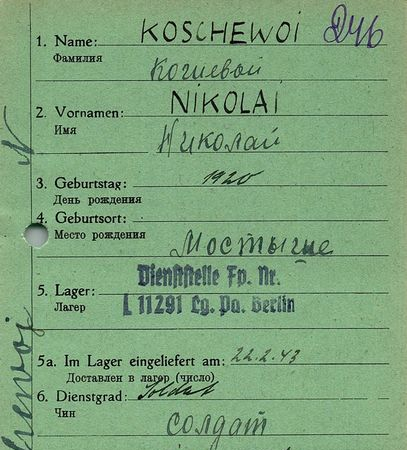 1. Name: KOSCHEWOI
Фамилия Кошевой
2. Vornamen: NIKOLAI
Имя Николай
3. Geburtstag: 1920
День рождения
4. Geburtsort:
Место рождения
Dienststelle Fp. Nr.
5. Lager: L 11291 Lg. Pa. Berlin
Лагер
5a. Im Lager eingeliefert am: 22.2.43
Доставлен в лагер (число)
6. Dienstgrad: Soldat
Чин
солдат